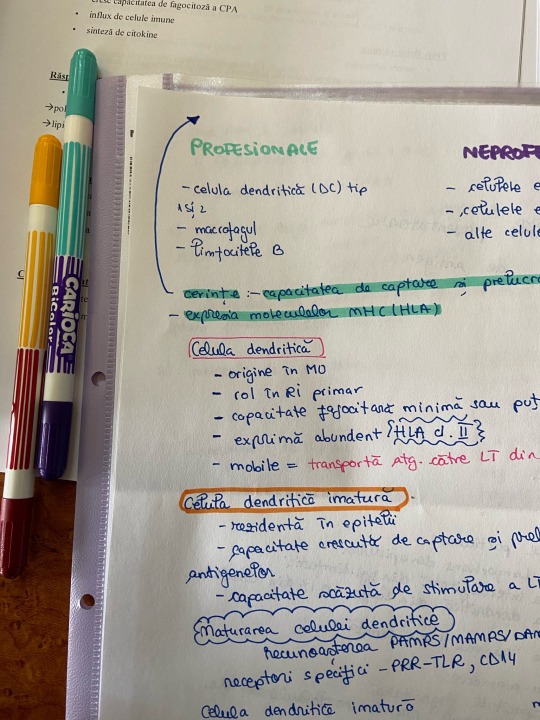 capacitatea de fagocitoză a CPA
• influx de celule imune
• sinteză de citokine
Răsp
→pol
→lipi
CARIOCA
BiColor
PROFESIONALE
- celula dendritică (DC) tip
1 și 2
- macrofagul
- limfocitele B
NEPROFE
- celulele e
- celulele e
- alte celule
cerințe :- capacitatea de captare și prelucra
- expresia moleculelor MHC (HLA)
Celula dendritică
- origine în MO
- rol în Ri primar
- capacitate fagocitară minimă sau puț
- exprimă abundent HLA cl. II
- mobile = transportă Atg. către LT din
Celula dendritică imatură
- rezidentă în epitelii
- capacitate crescută de captare și prel
antigenelor
- capacitate scăzută de stimulare a LT
Maturarea celulei dendritice
Recunoașterea PAMRS/MAMPS/DAM
receptori specifici - PRR-TLR, CD14
Celula dendritică imatură